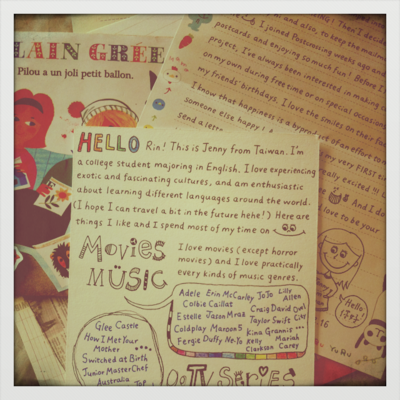 LAIN GREE
Pilou a un joli petit ballon.
and also, to keep the
I joined Postcrossing weeks ago and
postcards and enjoying so much fun! Before I
project, I've always been interested in making
on my own during free time or on special occasion
my friends' birthdays. I love the smiles on their
I know that happiness is a byproduct of an effort to
someone else happy
send a
my very FIRST
really excited !!!
And I do
love to be your
Hello
16
HELLO Rin! This is Jenny from Taiwan. I'm
a college student majoring in English. I love experiencing
exotic and fascinating cultures, and am enthusiastic
about learning different languages around the world.
(I hope I can travel a bit in the future hehe!) Here are
things I like and I spend most of my time on
Movies
MÜSIC
I love movies (except horror
movies) and I love practically
every kinds of music genres.
Adele Erin McCarley JoJo Lilly
Allen
Colbie Caillat
Craig David Owl
City
Estelle Jason Mraz
Taylor Swift
Coldplay Maroon5
Kina Grannis
Fergie Duffy Ne-Yo
Kelly
Clarkson
Mariah
Carey
Glee Castle
How I Met Your
Mother
Switched at Birth
Junior MasterChef
Australia
Top
TV SERIES